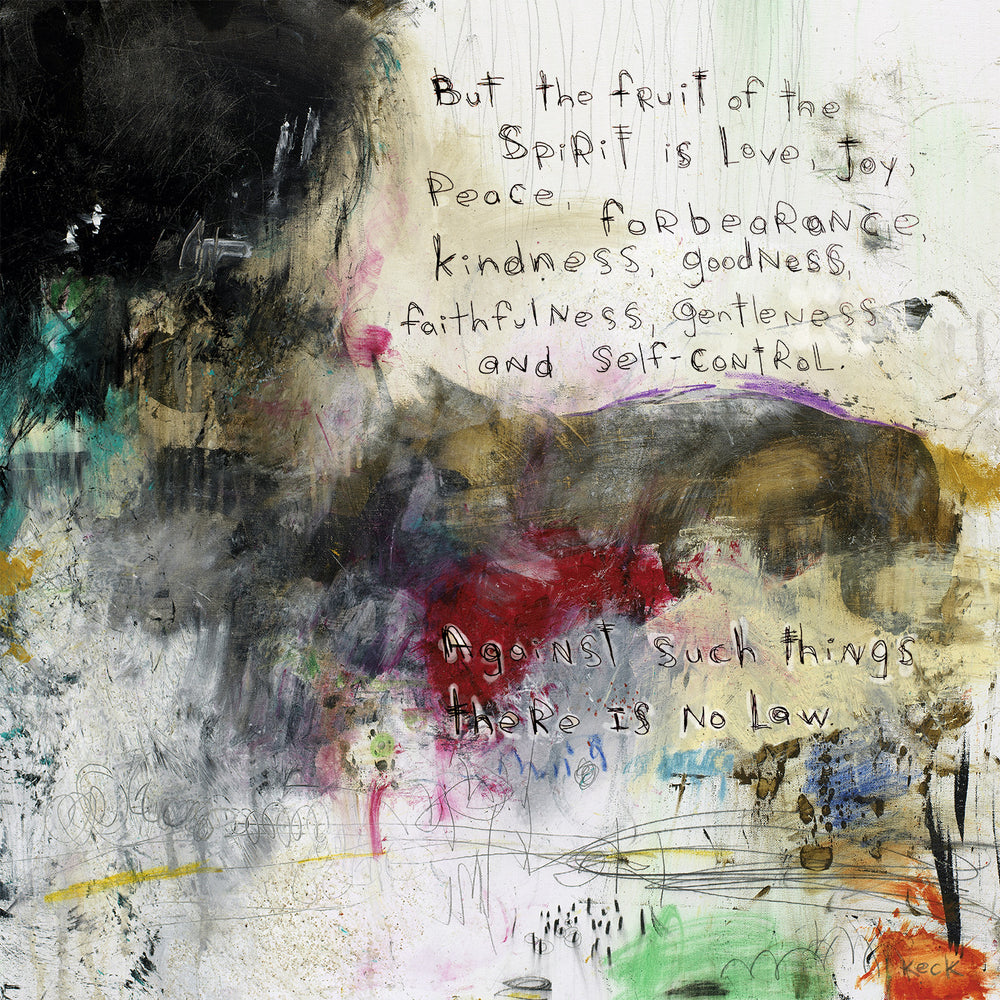 But the fruit of the
Spirit is Love, Joy,
Peace, forbearance,
kindness, goodness,
faithfulness, gentleness
and self-control.
Against such things
there is no Law.
Keck